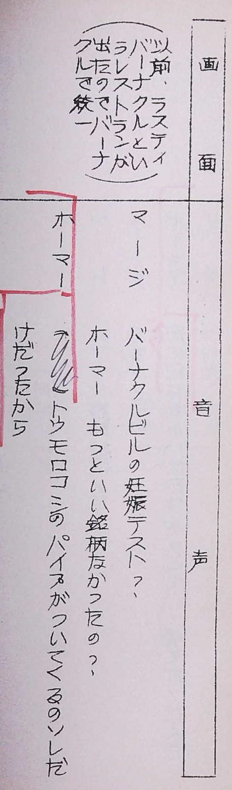 画面　音声
（以前、ラスティ
バーナクルとい
うレストランが
出たのでバーナ
クルで統一）
マージ　バーナクルビルの妊娠テスト？、
ホーマー　もっといい銘柄なかったの？、
ホーマー　トウモロコシのパイプがついてくるのソレだ
けだったから